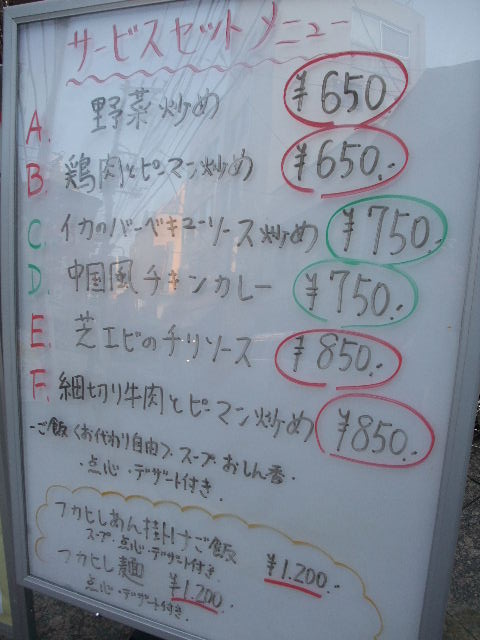 サービスセットメニュー
A. 野菜炒め ¥650
B. 鶏肉とピーマン炒め ¥650.-
C. イカのバーベキューソース炒め ¥750.-
D. 中国風チキンカレー ¥750.-
E. 芝エビのチリソース ¥850.-
F. 細切り牛肉とピーマン炒め ¥850.-
・ご飯〈お代わり自由〉、スープ おしん香・
・点心・デザート付き・
フカヒレあん掛けご飯 ¥1.200.-
スープ・点心・デザート付き・
フカヒレ麺 ¥1.200
点心・デザート付き・